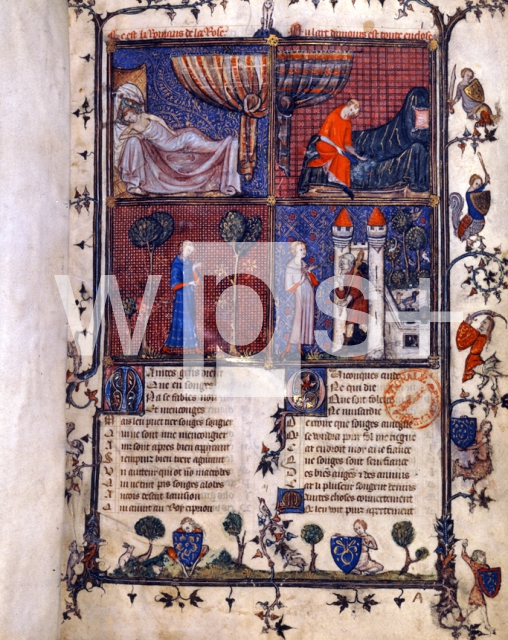 Ce est le Romans de la Rose
Ou lart damours est toute enclose
wps+
Maintes gens dient
Que en songes
Na se fables non
Et mencongies
Mais len puet songes songier
Qui ne sont mie mencongier
Ains sont apres bien
Si enpuis bien traire
Un aucteur qui ot no macrobes
Qui ne tient pas songes a lobes
lavision
Qui avint au Roy cipion
Quiconques cuide
Ne qui die
Que soit folour
Ne musardie
De croire que songes aviegne
Qui se voudra pour fol me tiegne
Car endroit moi ai fiance
Que songes sont senefiance
Des biens as gens et des anuis
Car li pluseur songent de nuis
Maintes choses couvertement
Que len voit puis apertement
A